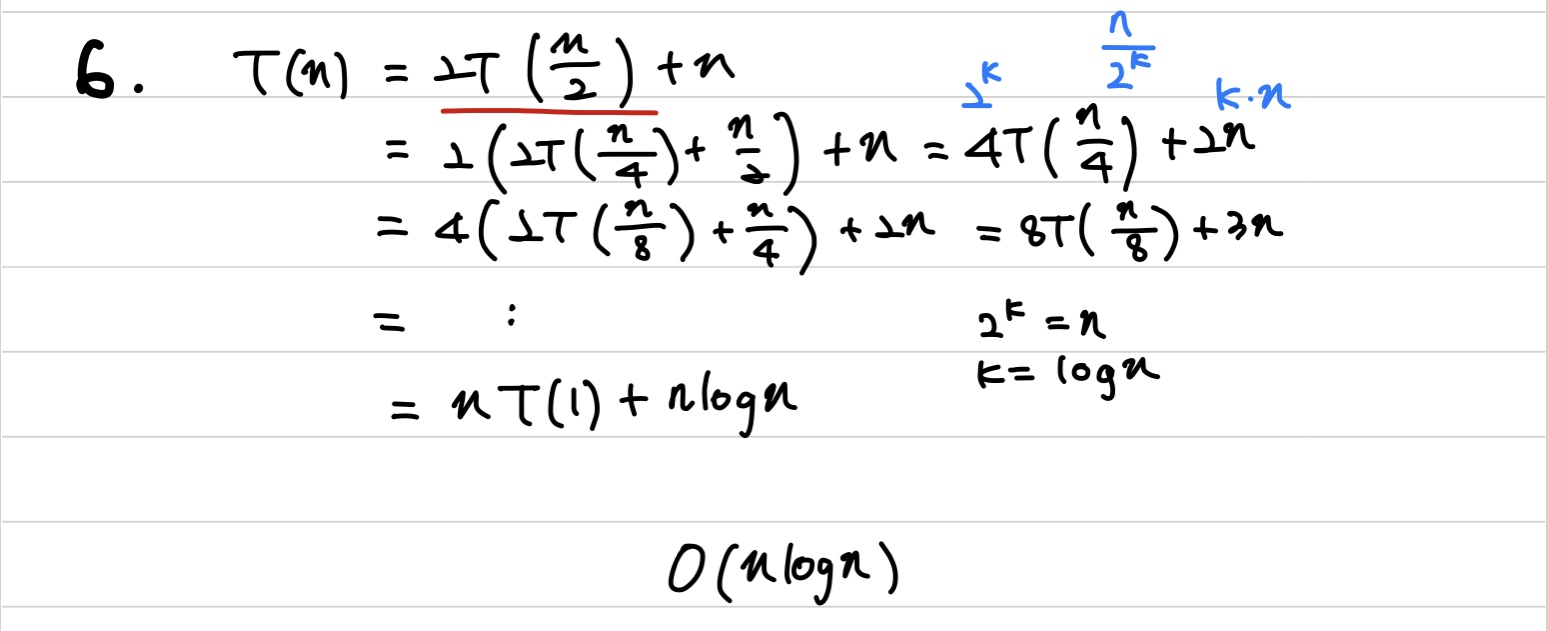 6. T(n) = 2T(n/2) + n
2^k n/2^k k·n
= 2(2T(n/4) + n/2) + n = 4T(n/4) + 2n
= 4(2T(n/8) + n/4) + 2n = 8T(n/8) + 3n
= : 2^k = n
k = log n
= nT(1) + nlogn
O(nlogn)